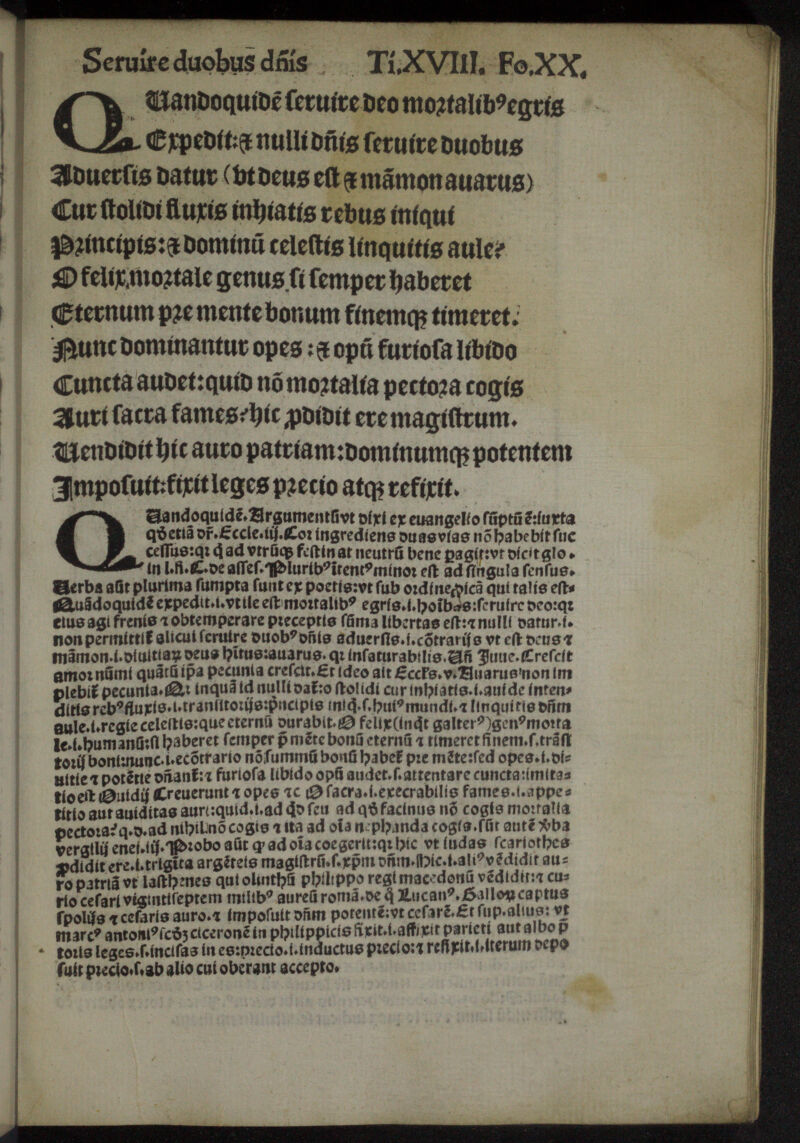 Seruire duobus dñis Ti.XVIII. Fo.XX.
QUandoquidẽ seruire deo mortalibꝰ egris
Expedit: ⁊ nulli dñis seruire duobus
Aduersis datur (vt deus est ⁊ mãmon auarus)
Cur stolidi fluxis inhiatis rebus iniqui
Principis: ⁊ dominũ celestis linquitis aule?
O felix mortale genus si semper haberet
Eternum pre mente bonum finemqꝫ timeret.
Nunc dominantur opes: ⁊ opũ furiosa libido
Cuncta audet: quid nõ mortalia pectora cogis
Auri sacra fames? hic ꝓdidit ere magistrum.
Uendidit hic auro patriam: dominumqꝫ potentem
Imposuit: fixit leges precio atqꝫ refixit.
QUandoquidẽ. Argumentũ vt dixi ex euangelio sũptũ ẽ: iuxta
qđ etiã dr̃. Eccle. iij. Cor ingrediens duas vias nõ habebit suc
cessus: qr q̃ ad vtrũqꝫ festinat neutrũ bene pagit: vt dicit glo.
in l. fi. C. de asses. Pluribꝰ ĩtentꝰ minor est ad singula sensus.
Uerba aũt plurima sumpta sunt ex poetis: vt sub ordine dicã qui talis est.
Quãdoquidẽ expedit .i. vtile est mortalibꝰ egris .i. hoĩbus: seruire deo: qr
eius agi frenis ⁊ obtemperare preceptis sũma libertas est: ⁊ nulli datur .i.
non permittit̃ alicui seruire duobꝰ dñis aduersis .i. cõtrarijs vt est deus ⁊
mãmon .i. diuitiaꝝ deus hĩtus: auarus. qr insaturabilis. Uñ Juue. Crescit
amor nũmi quãtũ ip̃a pecunia crescit. Et ideo ait Eccl's. v. Auarus non im
plebit̃ pecunia. Qr inquã id nulli dat̃: o stolidi cur inhiatis .i. auide inten-
ditis rebꝰ fluxis .i. transitorijs: p̃ncipis iniq̃. s. huiꝰ mundi. ⁊ linquitis dñm
aule .i. regie celestis: que eternũ durabit. O felix (inq̃t galterꝰ) genꝰ morta
le .i. humanũ: si haberet semper p̃ mẽte bonũ eternũ ⁊ timeret finem. s. trãsi
torij boni: nunc .i. ecõtrario nõ summũ bonũ habet̃ pre mẽte: sed opes .i. di-
uitie ⁊ potẽtie dñant̃: ⁊ furiosa libido opũ audet. s. attentare cuncta: imita-
tio est Ouidij Creuerunt ⁊ opes ⁊c O sacra .i. execrabilis fames .i. appe-
titio aut auiditas auri: quid .i. ad qd seu ad qđ facinus nõ cogis mortalia
pectora? q.d. ad nihil nõ cogis ⁊ ita ad oĩa nephanda cogis. sũt autẽ ꝟba
vergilij enei. iij. Probo aũt ꝙ ad oĩa coegerit: qr hic vt iudas scariothes
ꝓdidit ere .i. trigĩta argẽteis magistrũ. s. xp̃m dñm. hic .i. aliꝰ vẽdidit au-
ro patriã vt lasthenes qui olinthũ philippo regi macedonũ vẽdidit: ⁊ cu-
rio cesari vigintiseptem milibꝰ aureũ romã. de q̃ Lucanꝰ. Galloꝝ captus
spolijs ⁊ cesaris auro. ⁊ imposuit dñm potentẽ: vt cesarẽ. Et sup. alius: vt
marcꝰ antoniꝰ scđꝫ ciceronẽ in philippicis fixit .i. affixit parieti aut albo p̃
toris leges. s. incisas in es: precio .i. inductus precio: ⁊ refixit .i. iterum depo
suit precio. s. ab alio cui oberant accepto.